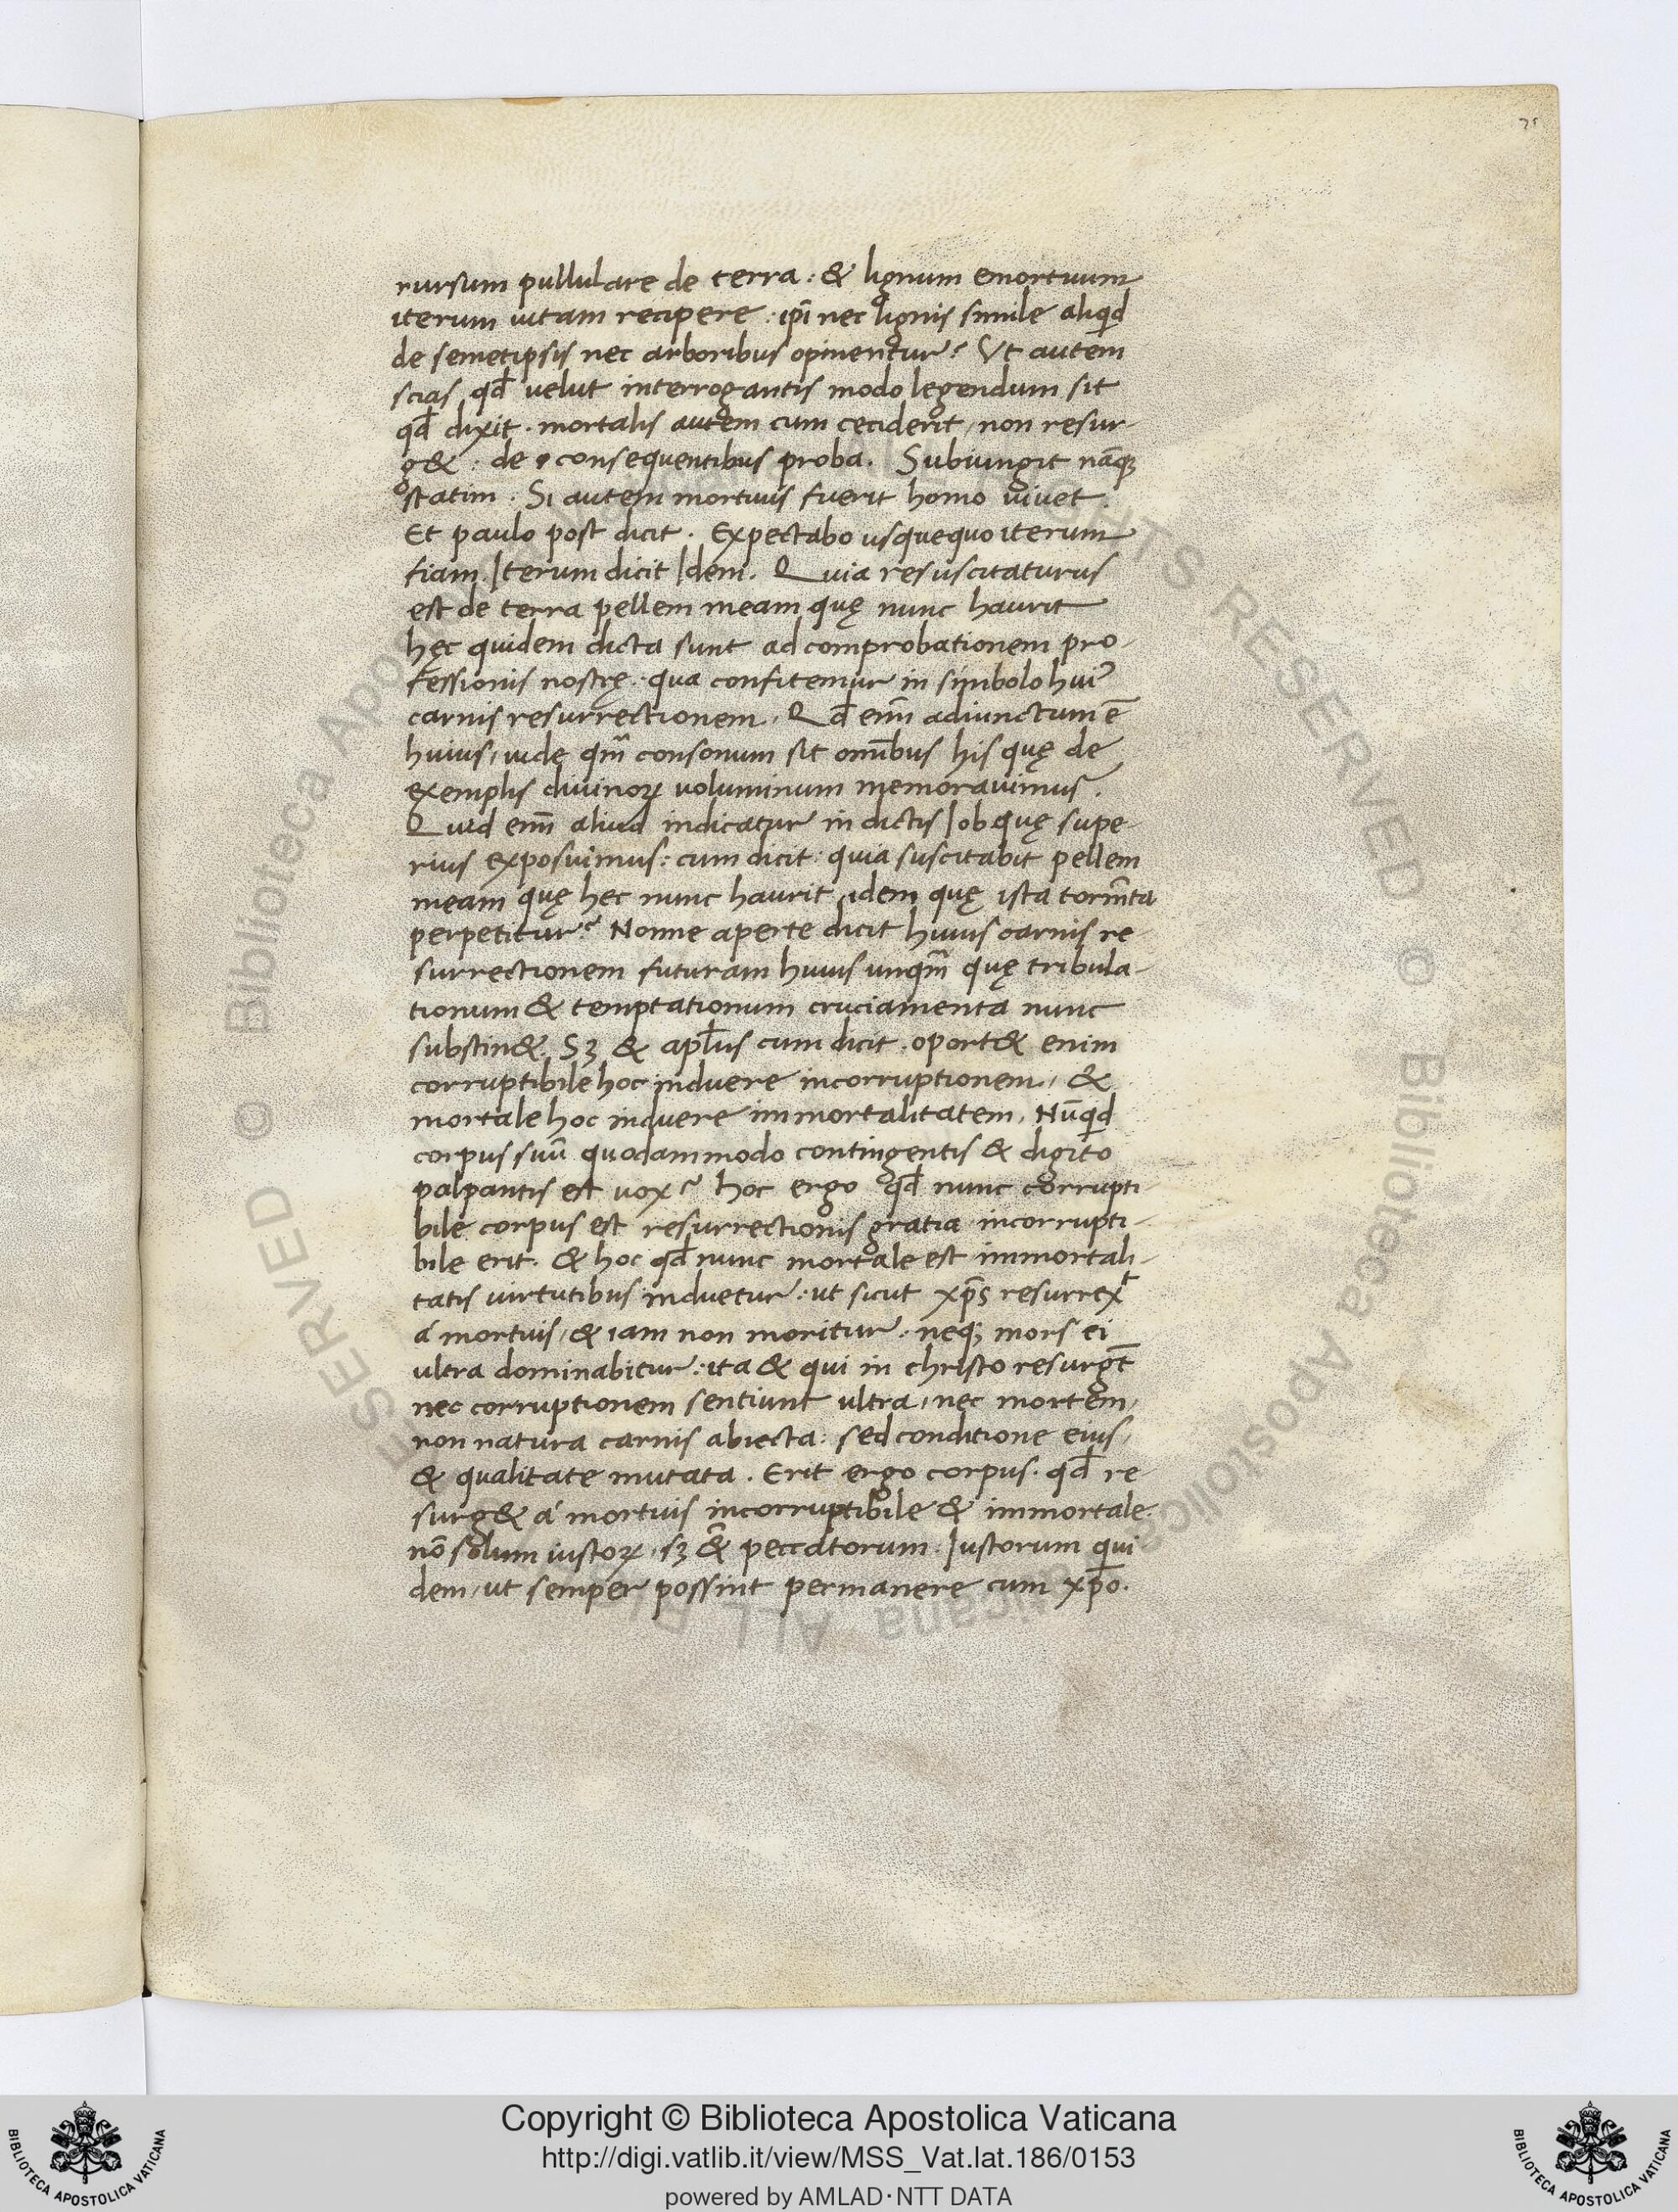 75
rursum pullulare de terra : & lignum emortuum
iterum uitam recipere : ip̄i nec lignis simile aliqͥd
de semetipsis nec arboribus opinentur? Vt autem
scias qd̄ uelut interrogantis modo legendum sit
qd̄ dixit . mortalis autem cum ceciderit, non resur-
g& : de consequentibus proba. Subiungit nāq;
statim . Si autem mortuus fuerit homo uiuet .
Et paulo post dicit . Expectabo usquequo iterum
fiam. Iterum dicit Idem. Quia resuscitaturus
est de terra pellem meam quę nunc haurit
hęc quidem dicta sunt ad comprobationem pro-
fessionis nostrę : qua confitemur in simbolo hui᾽
carnis resurrectionem. Qd̄ enī adiunctum ē
huius, uide qm̄ consonum sit omībus his quę de
exemplis diuinoꝝ uoluminum memorauimus.
Quid enī aliud indicatur in dictis Iob quę supe-
rius exposuimus : cum dicit : quia suscitabit pellem
meam quę hec nunc haurit, idem quę ista torm̄ta
perpetitur? Nonne aperte dicit huius carnis re-
surrectionem futuram huius unqm̄ quę tribula-
tionum & temptationum cruciamenta nunc
substin&. Sꝫ & apl̄us cum dicit . oport& enim
corruptibile hoc induere incorruptionem, &
mortale hoc induere immortalitatem. Nūqͥd
corpus suū quodammodo contingentis & digito
palpantis est uox? hoc ergo qd̄ nunc corrupti-
bile corpus est resurrectionis gratia incorrupti-
bile erit. & hoc qd̄ nunc mortale est immortali-
tatis uirtutibus induetur : ut sicut xp̄s resurrexͭ
á mortuis, & iam non moritur : neq; mors ei
ultra dominabitur : ita & qui in christo resurgt̄
nec corruptionem sentiunt ultra, nec mortem,
non natura carnis abiecta : sed conditione eius,
& qualitate mutata . Erit ergo corpus . qd̄ re-
surg& á mortuis incorruptibile & immortale.
nō solum iustoꝝ, sꝫ &̄ peccatorum. Iustorum qui-
dem, ut semper possint permanere cum xp̄o.
Copyright © Biblioteca Apostolica Vaticana
http://digi.vatlib.it/view/MSS_Vat.lat.186/0153
powered by AMLAD·NTT DATA